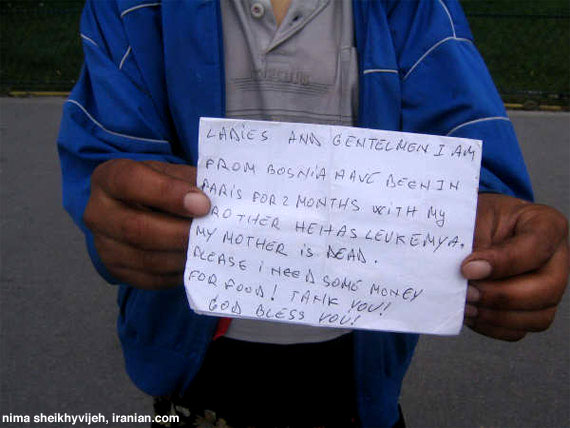 LADIES AND GENTELMEN I AM
FROM BOSNIA HAVE BEEN IN
PARIS FOR 2 MONTHS WITH MY
BROTHER HE HAS LEUKEMYA.
MY MOTHER IS DEAD.
PLEASE I NEED SOME MONEY
FOR FOOD! TANK YOU!
GOD BLESS YOU!
nima sheikhyvijeh, iranian.com